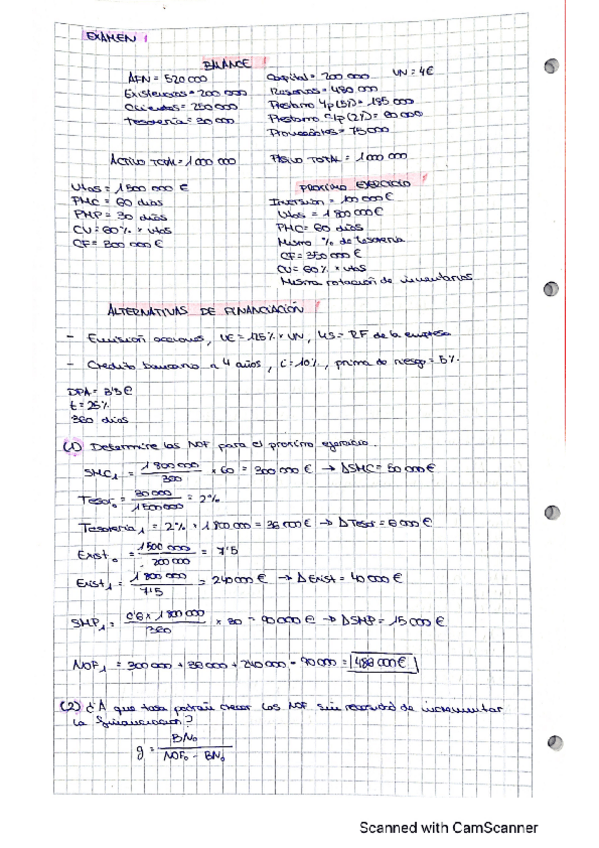 EXAMEN 1
BALANCE 1
AFN = 520 000
Existencias = 200 000
Clientes = 250 000
Tesorería = 30 000
Capital = 200 000 VN = 4€
Reservas = 480 000
Préstamo 4p (5%) = 185 000
Préstamo c/p (2%) = 80 000
Proveedores = 75 000
ACTIVO TOTAL = 1 000 000 PASIVO TOTAL = 1 000 000
Vtas = 1 500 000 €
PMC = 60 días
PMP = 30 días
CV = 60% x vtas
CF = 300 000 €
PRÓXIMO EJERCICIO
Inversión = 100 000 €
Vtas = 1 800 000 €
PMC = 60 días
Mismo % de tesorería
CF = 350 000 €
CV = 60% x vtas
Misma rotación de inventarios
ALTERNATIVAS DE FINANCIACIÓN
- Emisión acciones, VE = 125% x VN, = RF de la empresa
- Crédito bancario a 4 años, i = 10%, prima de riesgo = 5%.
DPA = 3'5 €
t = 25%
360 días
(1) Determine las NOF para el próximo ejercicio.
SMC₁ = 1 800 000 / 360 x 60 = 300 000 € → ΔSMC = 50 000 €
Tesor₀ = 30 000 / 1 500 000 = 2%
Tesorería₁ = 2% x 1 800 000 = 36 000 € → ΔTesor = 6 000 €
Exist₀ = 1 500 000 / 200 000 = 7'5
Exist₁ = 1 800 000 / 7'5 = 240 000 € → ΔExist = 40 000 €
SMP₁ = 0'6 x 1 800 000 / 360 x 30 = 90 000 € → ΔSMP = 15 000 €
NOF₁ = 300 000 + 36 000 + 240 000 - 90 000 = 486 000 €
(2) ¿A que tasa podrían crecer las NOF sin necesidad de incrementar
la financiación?
g = BN₀ / NOF₀ - BN₀
Scanned with CamScanner